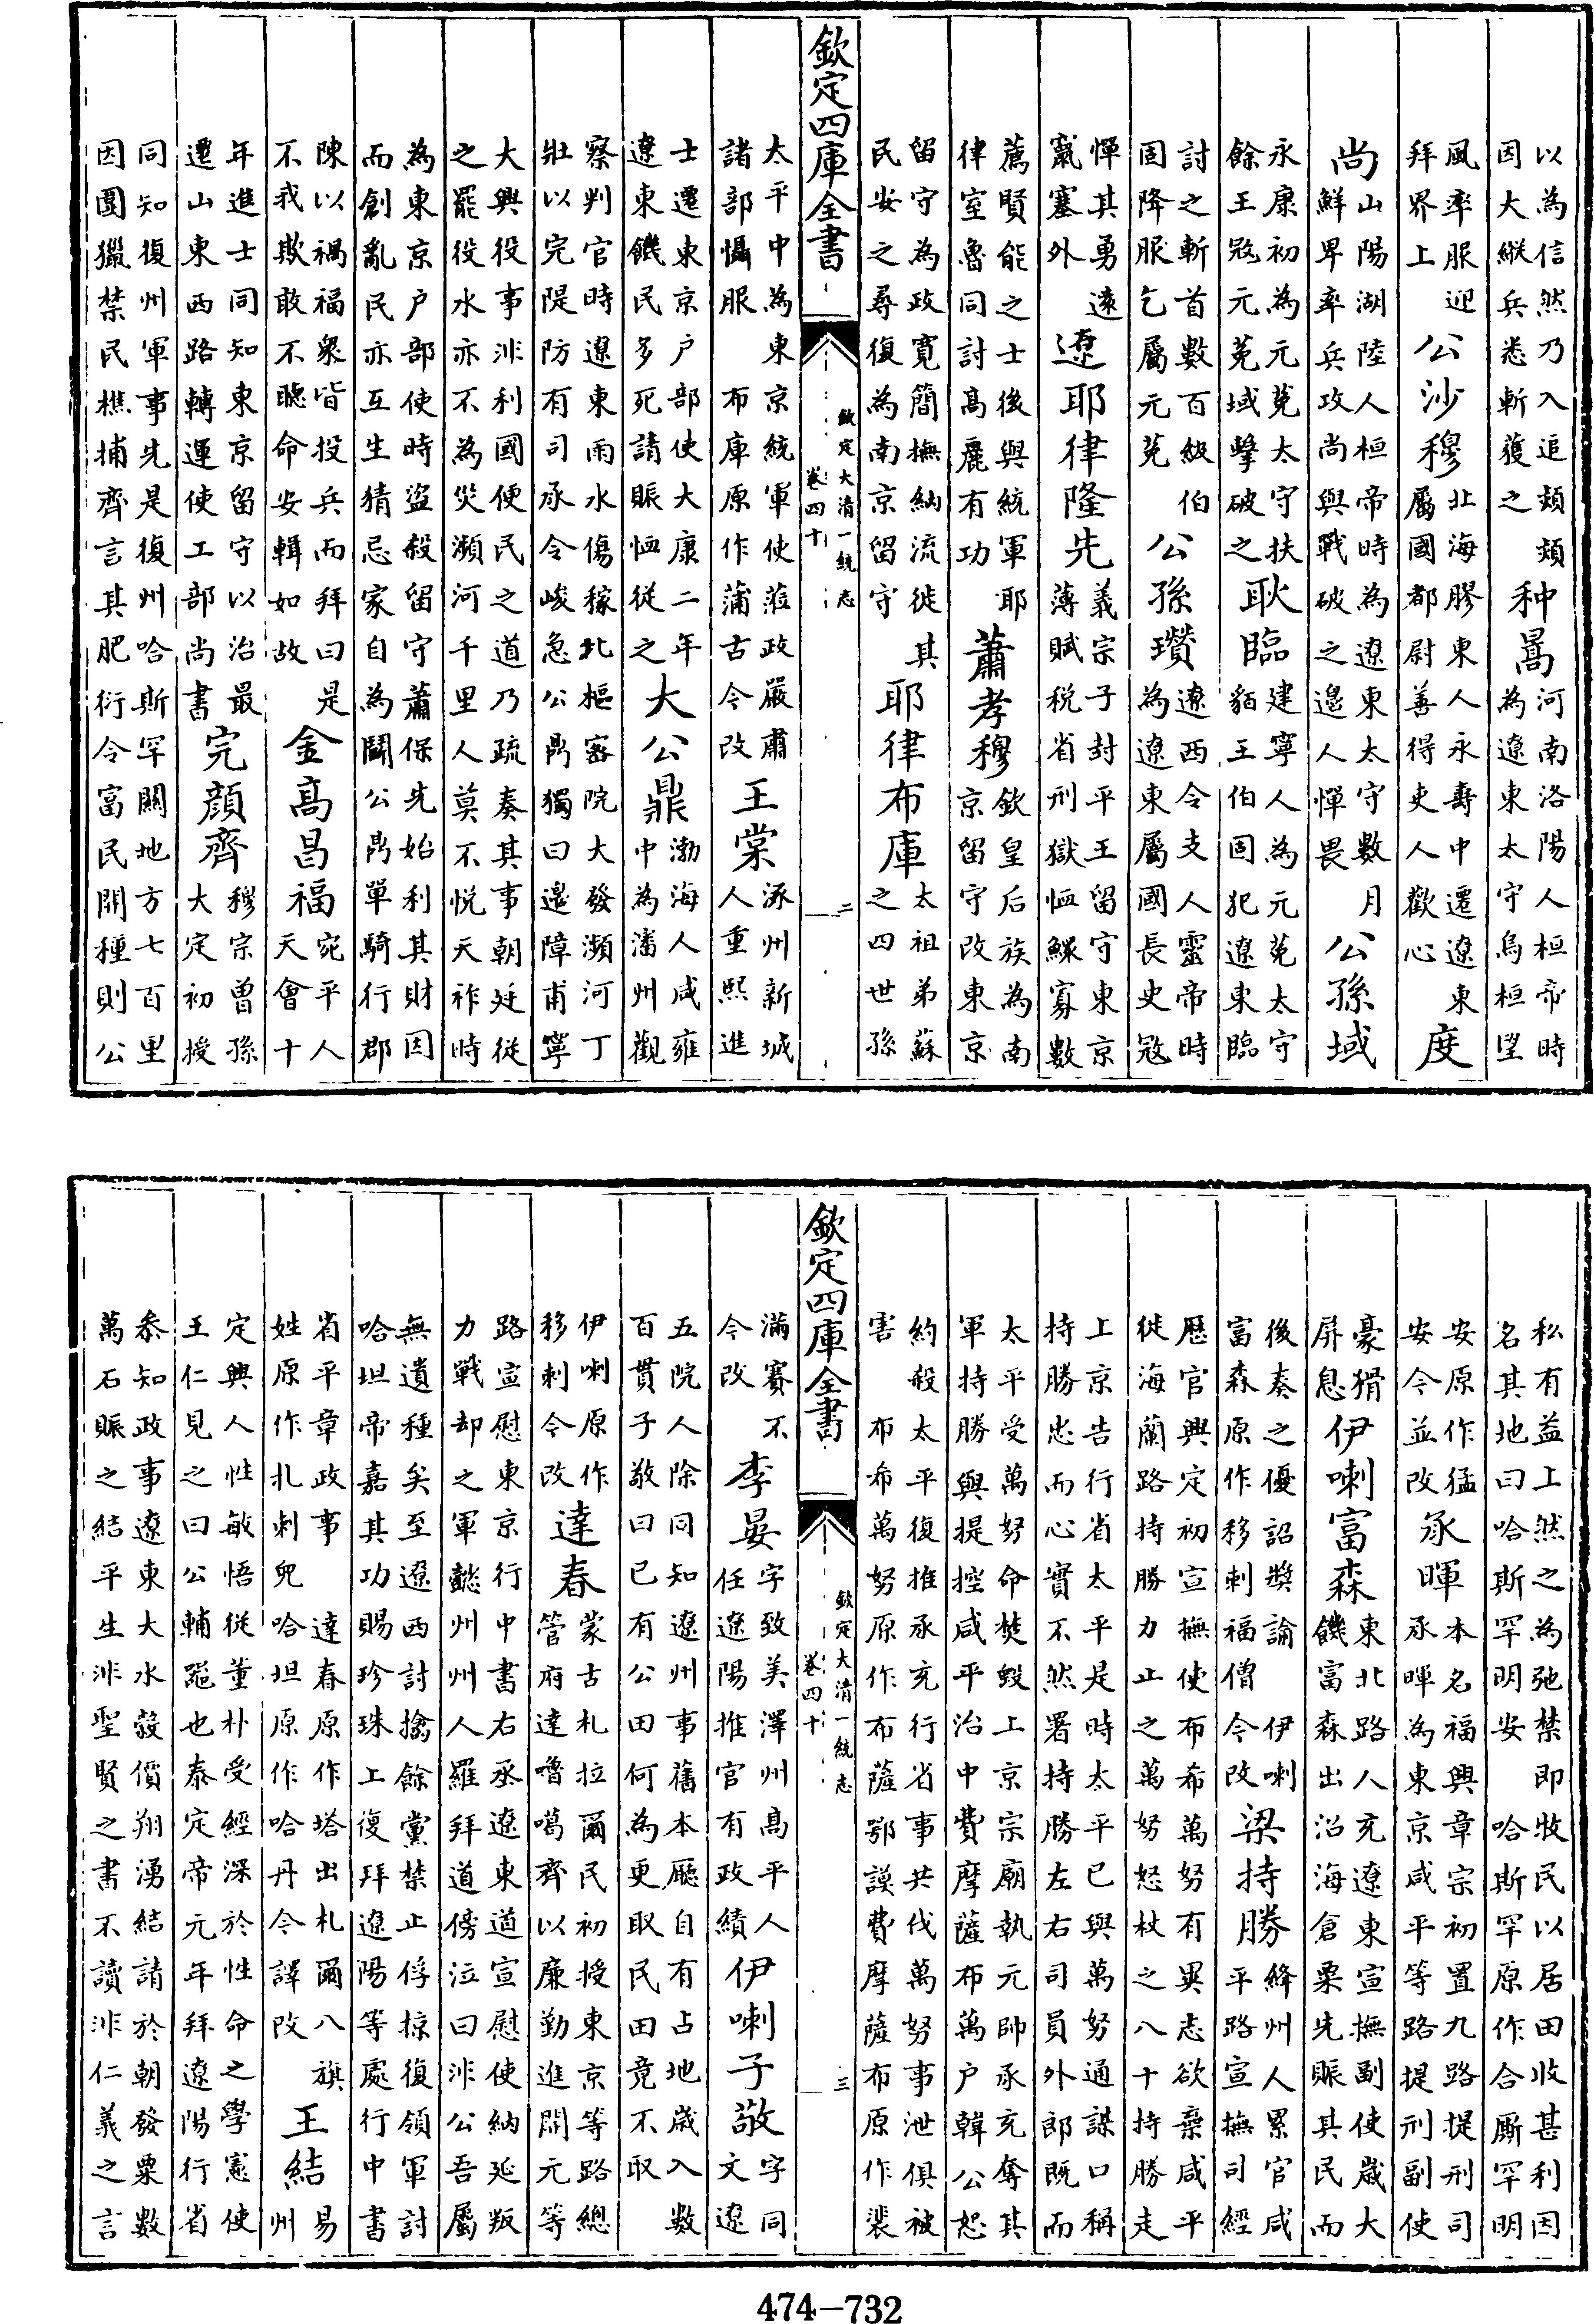 以為信然乃入追頰頰因大縱兵悉斬獲之种暠河南洛陽人桓帝時為遼東太守烏桓望
風率服迎拜界上公沙穆北海膠東人永壽中遷遼東屬國都尉善得吏人歡心度
尚山陽湖陸人桓帝時為遼東太守數月鮮卑率兵攻尚與戰破之邊人憚畏公孫域
永康初為元菟太守扶餘王冦元菟域擊破之耿臨建寧人為元菟太守貊王伯固犯遼東臨
討之斬首數百級伯固降服乞屬元菟公孫瓚遼西令支人靈帝時為遼東屬國長史冦
憚其勇遠竄塞外遼耶律隆先義宗子封平王留守東京薄賦稅省刑獄恤鰥寡數
薦賢能之士後與統軍耶律室魯同討高麗有功蕭孝穆欽皇后族為南京留守改東京
留守為政寛簡撫納流徙其民安之尋復為南京留守耶律布庫太祖弟蘇之四世孫
欽定四庫全書 欽定大清一統志 卷四十 二
太平中為東京統軍使蒞政嚴肅諸部懾服 布庫原作蒲古今改王棠涿州新城人重熙進
士遷東京户部使大康二年遼東饑民多死請賑恤從之大公鼎渤海人咸雍中為瀋州觀
察判官時遼東雨水傷稼北樞密院大發瀕河丁壯以完隄防有司承令峻急公鼎獨曰邊障甫寧
大興役事非利國便民之道乃疏奏其事朝廷從之罷役水亦不為災瀕河千里人莫不悦天祚時
為東京户部使時盜殺留守蕭保先始利其財因而創亂民亦互生猜忌家自為鬭公鼎單騎行郡
陳以禍福衆皆投兵而拜曰是不我欺敢不聽命安輯如故金高昌福宛平人天會十
年進士同知東京留守以治最遷山東西路轉運使工部尚書完顔齊穆宗曽孫大定初授
同知復州軍事先是復州哈斯罕關地方七百里因圍獵禁民樵捕齊言其肥衍令富民開種則公
私有益上然之為弛禁即牧民以居田收甚利因名其地曰哈斯罕明安 哈斯罕原作合厮罕明
安原作猛安今並改承暉本名福興章宗初置九路提刑司承暉為東京咸平等路提刑副使
豪猾屏息伊喇富森東北路人充遼東宣撫副使歲大饑富森出沿海倉粟先賑其民而
後奏之優詔奬諭富森原作移剌福僧 伊喇今改梁持勝絳州人累官咸平路宣撫司經
歷官興定初宣撫使布希萬努有異志欲棄咸平徙海蘭路持勝力止之萬努怒杖之八十持勝走
上京告行省太平是時太平已與萬努通謀口稱持勝忠而心實不然署持勝左右司員外郎既而
太平受萬努命焚毀上京宗廟執元帥承充奪其軍持勝與提控咸平治中費摩薩布萬户韓公恕
約殺太平復推承充行省事共伐萬努事泄俱被害 布希萬努原作布薩鄂謨費摩薩布原作裴
欽定四庫全書 欽定大清一統志 卷四十 三
滿賽不今改李晏字致美澤州高平人任遼陽推官有政績伊喇子敬字同文遼
五院人除同知遼州事舊本廳自有占地歲入數百貫子敬曰已有公田何為更取民田竟不取
伊喇原作移剌今改達春蒙古札拉爾民初授東京等路總管府達嚕噶齊以廉勤進開元等
路宣慰東京行中書右丞遼東道宣慰使納延叛力戰却之軍懿州州人羅拜道傍泣曰非公吾屬
無遺種矣至遼西討擒餘黨禁止俘掠復領軍討哈坦帝嘉其功賜珍珠上復拜遼陽等處行中書
省平章政事 達春原作塔出札爾八旗姓原作札剌兒 哈坦原作哈丹今譯改王結易州
定興人性敏悟從董朴受經深於性命之學憲使王仁見之曰公輔噐也泰定帝元年拜遼陽行省
叅知政事遼東大水穀價翔湧結請於朝發粟數萬石賑之結平生非聖賢之書不讀非仁義之言
474-732